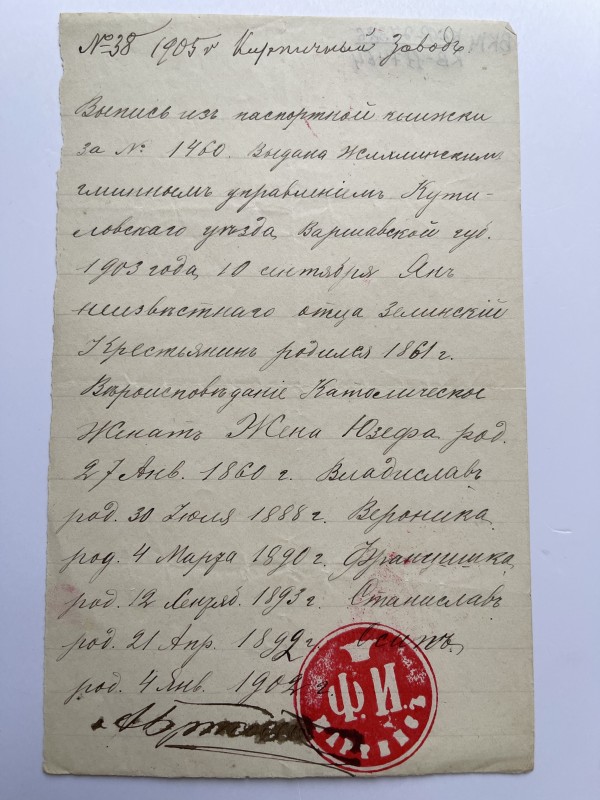 № 38 1905 г Кирпичный Заводъ
Выпись изъ паспортной книжки
за № 1460. Выдана
гминнымъ управленіемъ Кути-
ловскаго уѣзда, Варшавской губ.
1903 года, 10 сентября Янъ
неизвѣстнаго отца Зелинскій
Крестьянинъ родился 1861 г.
Вѣроисповѣданіе Католическое
Женатъ Жена Юзефа род.
27 Янв. 1860 г. Владиславъ
род. 30 Іюля 1888 г. Вероника
род. 4 Марта 1890 г. Францишка
род. 12 1893 г. Станиславъ
род. 21 Апр. г. Осипъ
род. 4 Янв. 1902 г.
Ф. И.